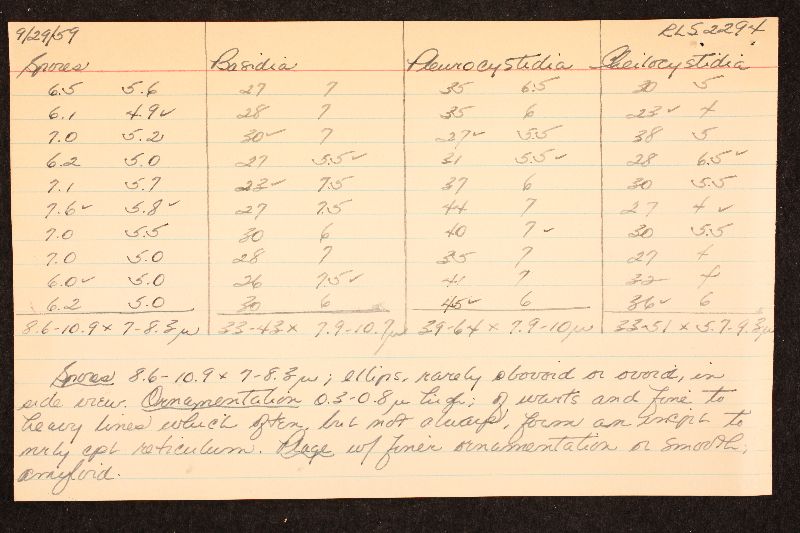 9/29/59 RLS 2294
Spores Basidia Pleurocystidia Cheilocystidia
6.5 5.6 27 7 35 6.5 30 5
6.1 4.9✓ 28 7 35 6 23✓ 4
7.0 5.2 30✓ 7 27✓ 5.5 38 5
6.2 5.0 27 5.5✓ 31 5.5✓ 28 6.5✓
7.1 5.7 23✓ 7.5 37 6 30 5.5
7.6✓ 5.8✓ 27 7.5 44 7 27 4✓
7.0 5.5 30 6 40 7✓ 30 5.5
7.0 5.0 28 7 35 7 27 4
6.0✓ 5.0 26 7.5✓ 41 7 32 4
6.2 5.0 30 6 45✓ 6 36✓ 6
8.6-10.9 × 7-8.3μ 33-43 × 7.9-10.7μ 39-64 × 7.9-10μ 33-51 × 5.7-9.3μ
Spores 8.6-10.9 × 7-8.3μ; ellips. rarely obovoid or ovoid, in
side view. Ornamentation 0.3-0.8μ high; of warts and fine to
heavy lines which often, but not always, form an incipt to
nrly cpt reticulum. Plage w/ finer ornamentation or smooth,
amyloid.